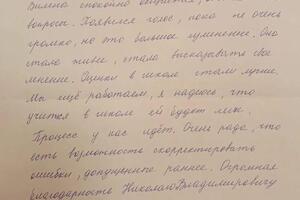 спокойно общается,
вопросы. Появился голос, пока не очень
громко, но это большое изменение. Она
стала живее, стала высказывать свое
мнение. Оценки в школе стали лучше.
Мы ещё работаем, я надеюсь, что
учится в школе ей будет легче.
Процесс у нас идёт. Очень рада, что
есть возможность скорректировать
ошибки, допущенные ранее. Огромная
благодарность Николаю Владимировичу